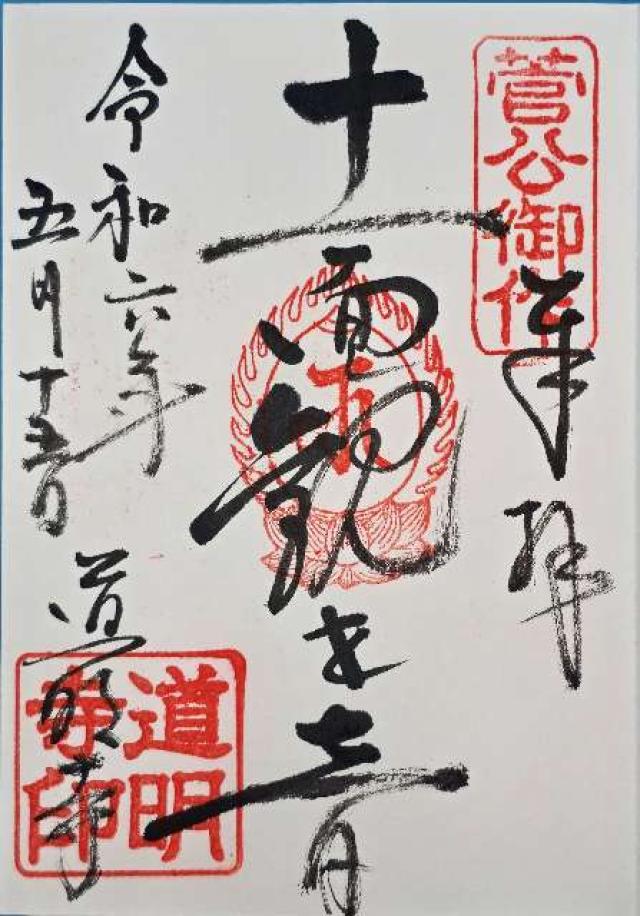 菅公御作
奉拝
十一面観世音
令和六年
五月十五日
道明寺
道明寺印